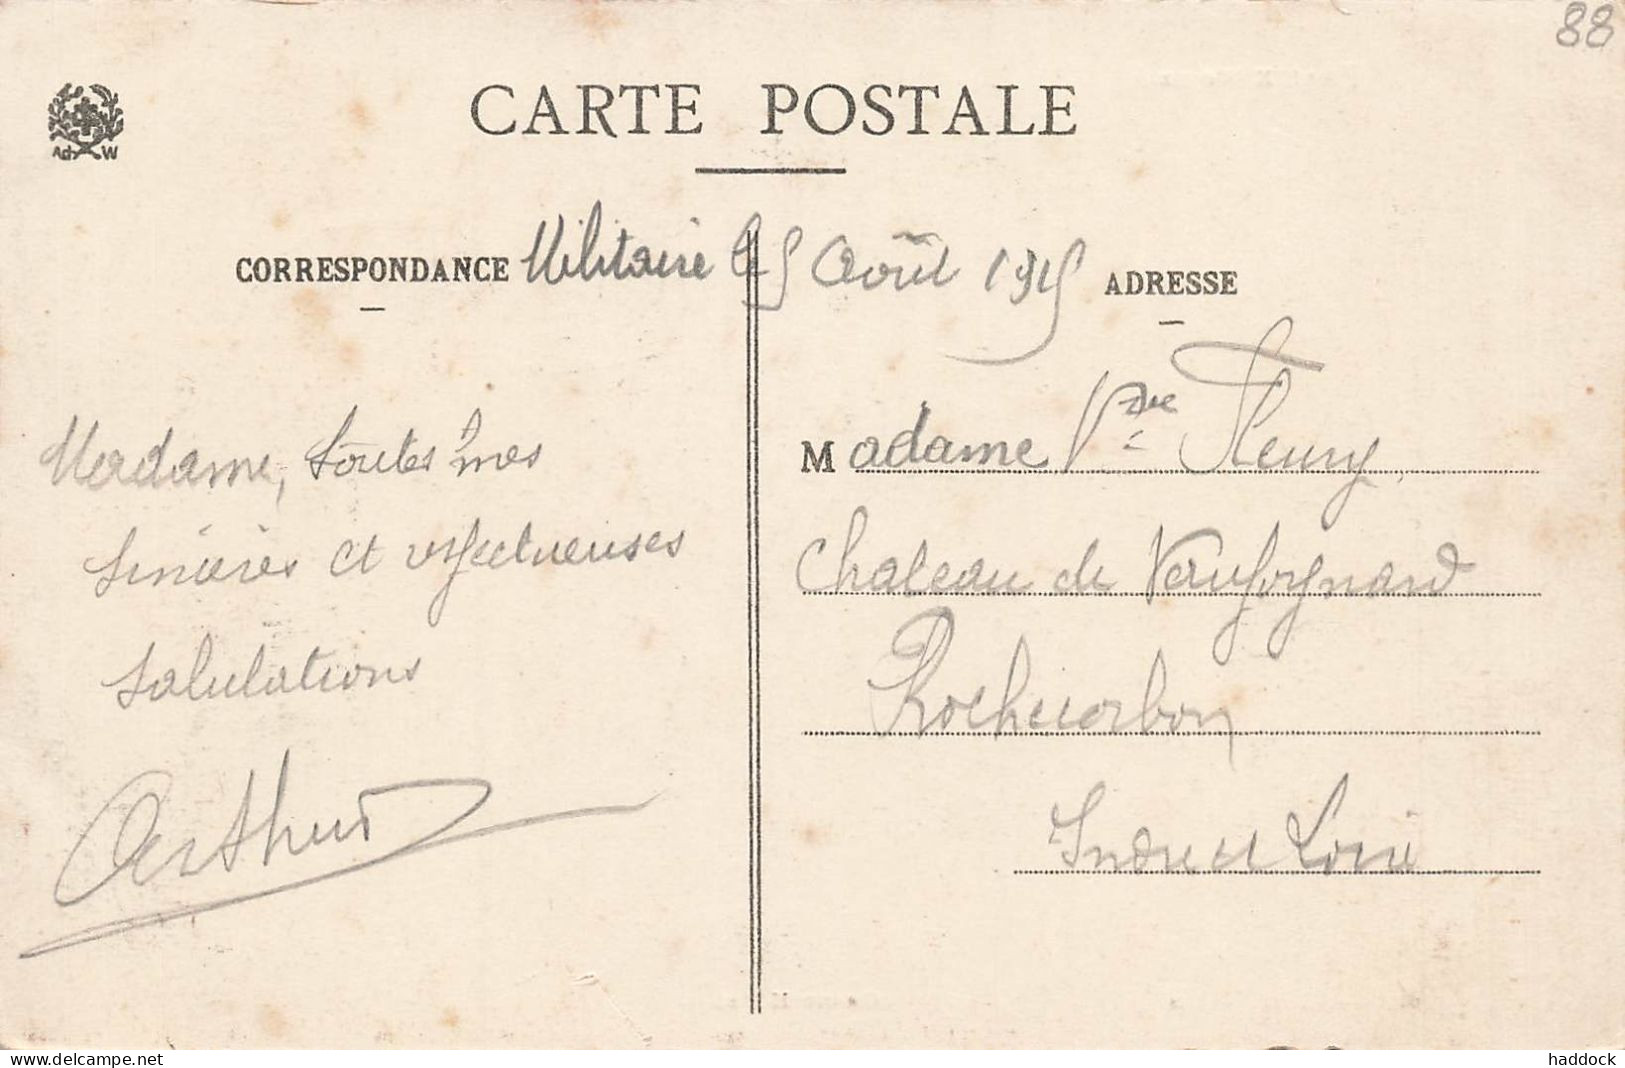 88
CARTE POSTALE
Ad W
CORRESPONDANCE Militaire le 5 Août 1915 ADRESSE
Madame, toutes mes
sincères et affectueuses
salutations
Arthur
Madame Vve Fleury
Chateau de Vaufoynard
Rochecorbon
Indre et Loire
www.delcampe.net
haddock